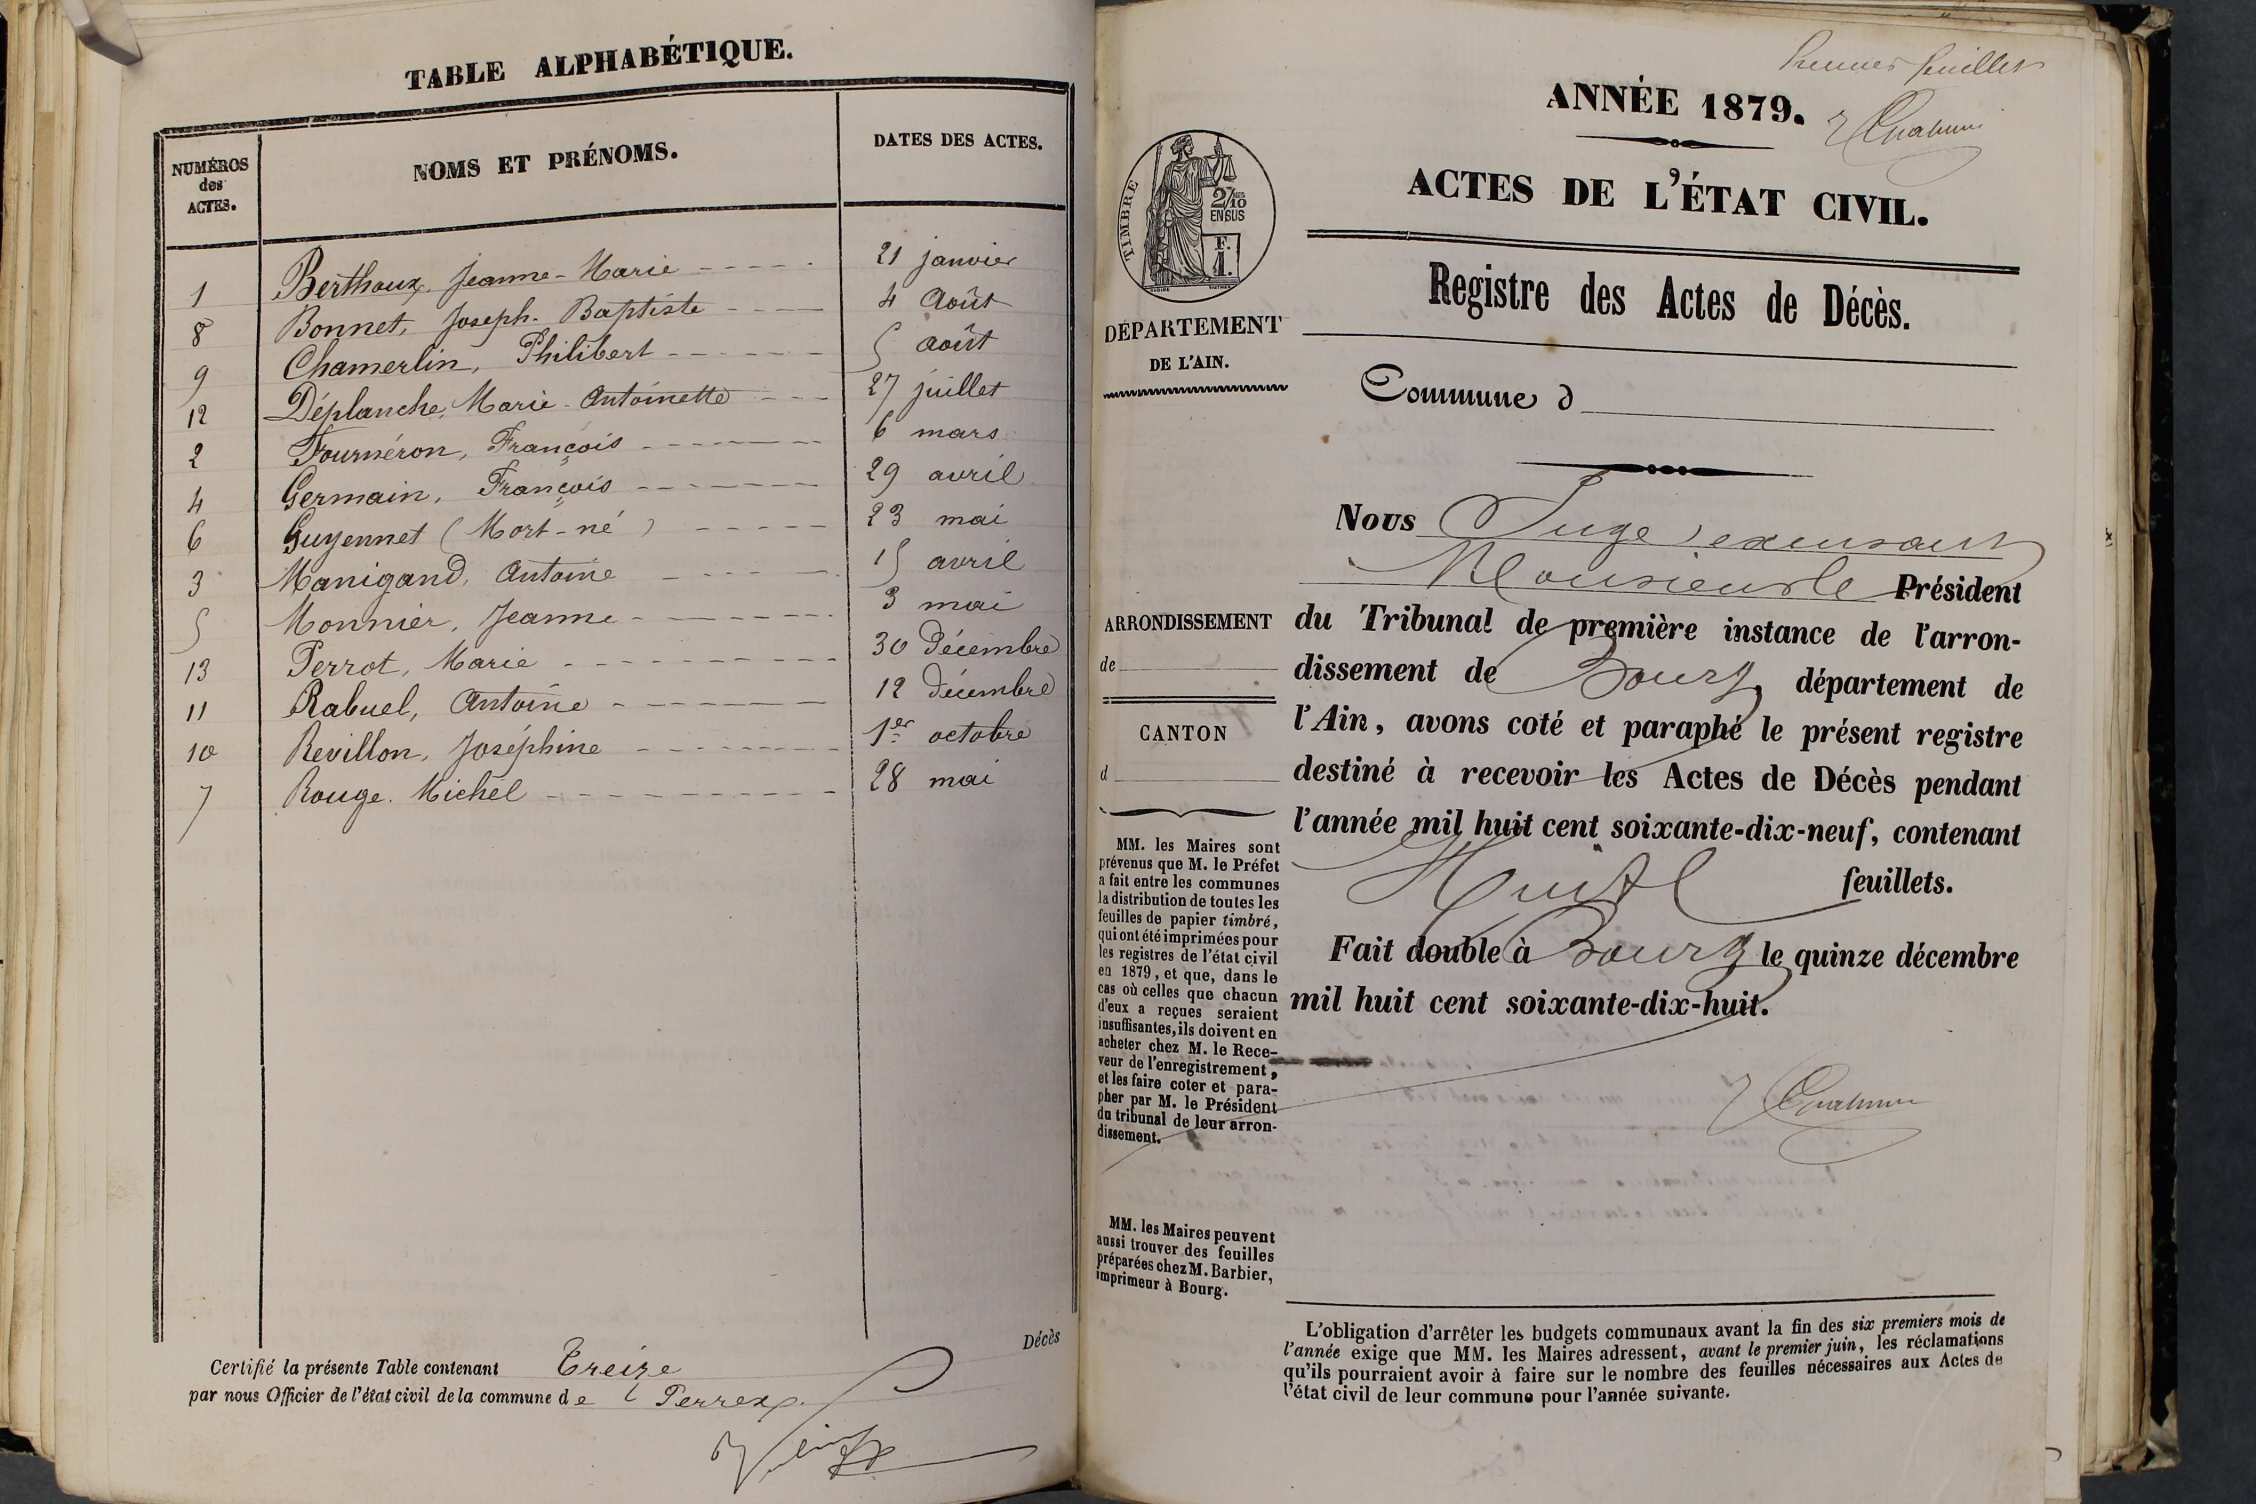 TABLE ALPHABÉTIQUE.
NUMÉROS des ACTES.
NOMS ET PRÉNOMS.
DATES DES ACTES.
1 Berthoux, Jeanne-Marie 21 janvier
8 Bonnet, Joseph-Baptiste 4 Août
9 Chamerlin, Philibert 5 août
12 Déplanche, Marie-Antoinette 27 juillet
2 Fournéron, François 6 mars
4 Germain, François 29 avril
6 Guyennet (Mort-né) 23 mai
3 Manigand, Antoine 15 avril
5 Monnier, Jeanne 3 mai
13 Perrot, Marie 30 Décembre
11 Rabuel, Antoine 12 décembre
10 Revillon, Joséphine 1er octobre
7 Rouge Michel 28 mai
Décès
Certifié la présente Table contenant Treize
par nous Officier de l'état civil de la commune de Perrex
Premier feuillet
ANNÉE 1879.
ACTES DE L'ÉTAT CIVIL.
Registre des Actes de Décès.
Commune d
TIMBRE
2/10
EN SUS
F.
1.
DÉPARTEMENT
DE L'AIN.
ARRONDISSEMENT
de
CANTON
d
MM. les Maires sont
prévenus que M. le Préfet
a fait entre les communes
la distribution de toutes les
feuilles de papier timbré,
qui ont été imprimées pour
les registres de l'état civil
en 1879, et que, dans le
cas où celles que chacun
d'eux a reçues seraient
insuffisantes, ils doivent en
acheter chez M. le Rece-
veur de l'enregistrement,
et les faire coter et para-
pher par M. le Président
du tribunal de leur arron-
dissement.
MM. les Maires peuvent
aussi trouver des feuilles
préparées chez M. Barbier,
imprimeur à Bourg.
Nous Juge, excusant
Monsieur le Président
du Tribunal de première instance de l'arron-
dissement de Bourg, département de
l'Ain, avons coté et paraphé le présent registre
destiné à recevoir les Actes de Décès pendant
l'année mil huit cent soixante-dix-neuf, contenant
Huit feuillets.
Fait double à Bourg le quinze décembre
mil huit cent soixante-dix-huit.
L'obligation d'arrêter les budgets communaux avant la fin des six premiers mois de
l'année exige que MM. les Maires adressent, avant le premier juin, les réclamations
qu'ils pourraient avoir à faire sur le nombre des feuilles nécessaires aux Actes de
l'état civil de leur commune pour l'année suivante.